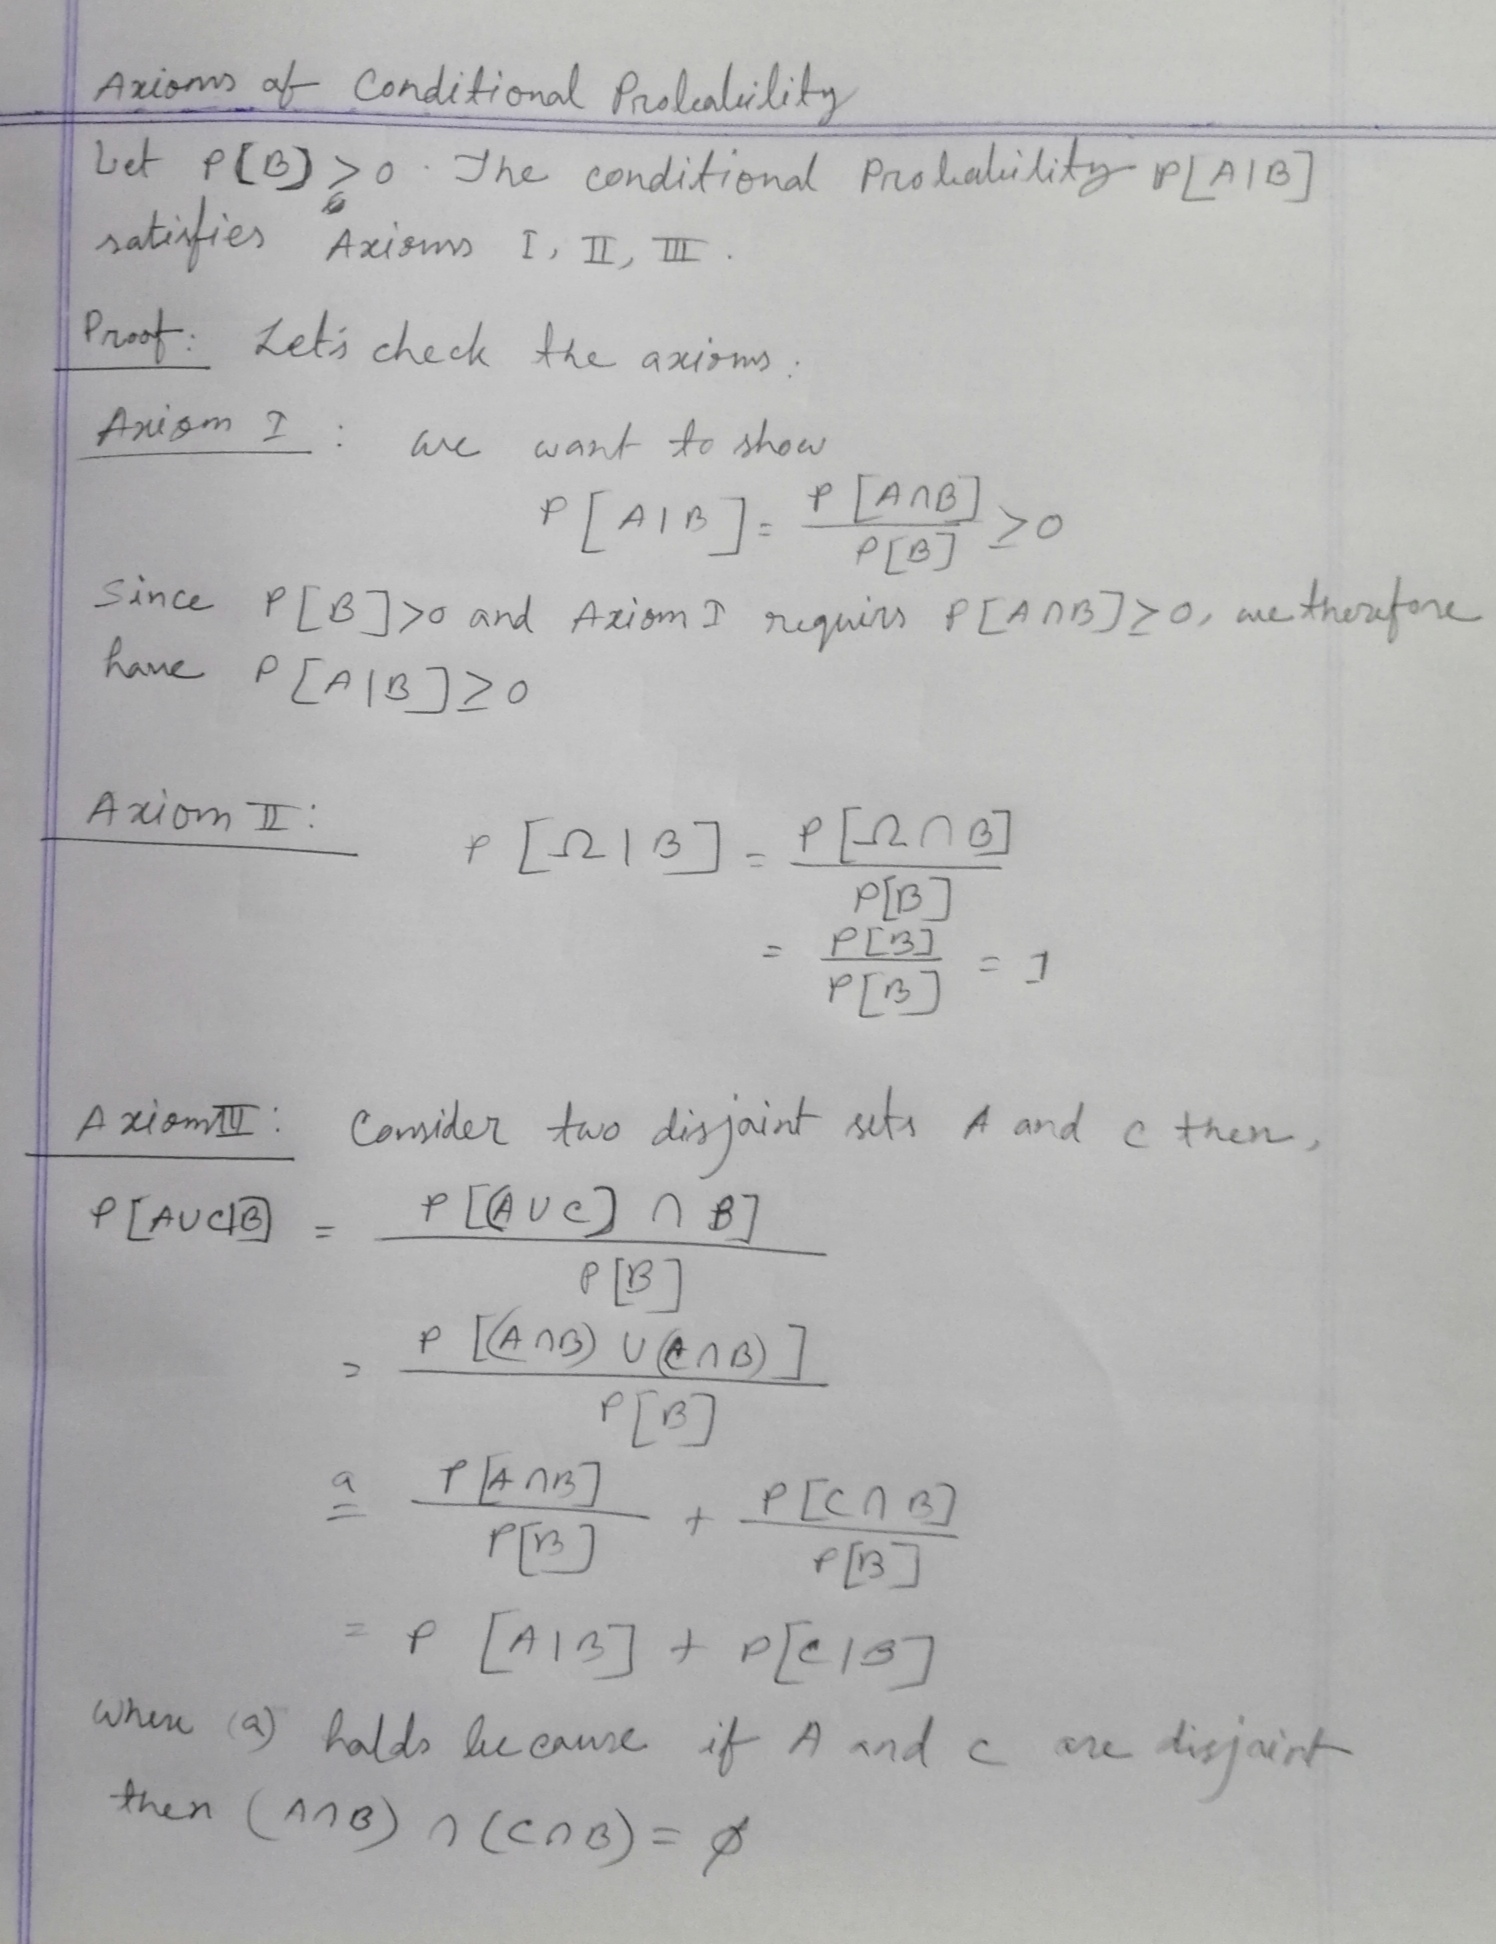 Axioms of Conditional Probability
Let P[B] > 0. The conditional Probability P[A|B]
satisfies Axioms I, II, III.
Proof: Let's check the axioms.
Axiom I : we want to show
P[A|B] = P[A∩B] / P[B] ≥ 0
Since P[B]>0 and Axiom I requirs P[A∩B]≥0, we therefore
have P[A|B]≥0
Axiom II: P[Ω|B] = P[Ω∩B] / P[B]
= P[B] / P[B] = 1
Axiom III: Consider two disjoint sets A and C then,
P[A∪C|B] = P[(A∪C) ∩ B] / P[B]
= P[(A∩B) ∪ (C∩B)] / P[B]
a= P[A∩B] / P[B] + P[C∩B] / P[B]
= P[A|B] + P[C|B]
where (a) holds because if A and C are disjoint
then (A∩B) ∩ (C∩B) = ∅